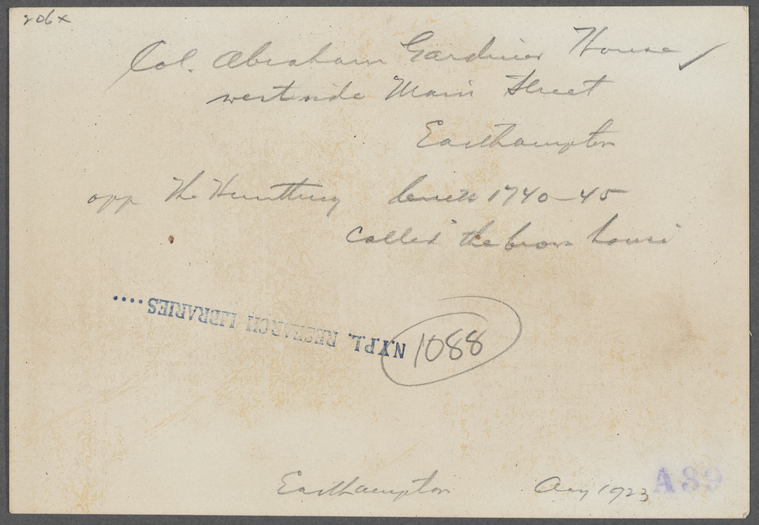 206x
Col. Abraham Gardiner House ✓
west side Main Street
Easthampton
opp The Huntting built 1740-45
Called "the brown house"
N.Y.P.L. RESEARCH LIBRARIES ....
1088
Easthampton Aug 1923
A39